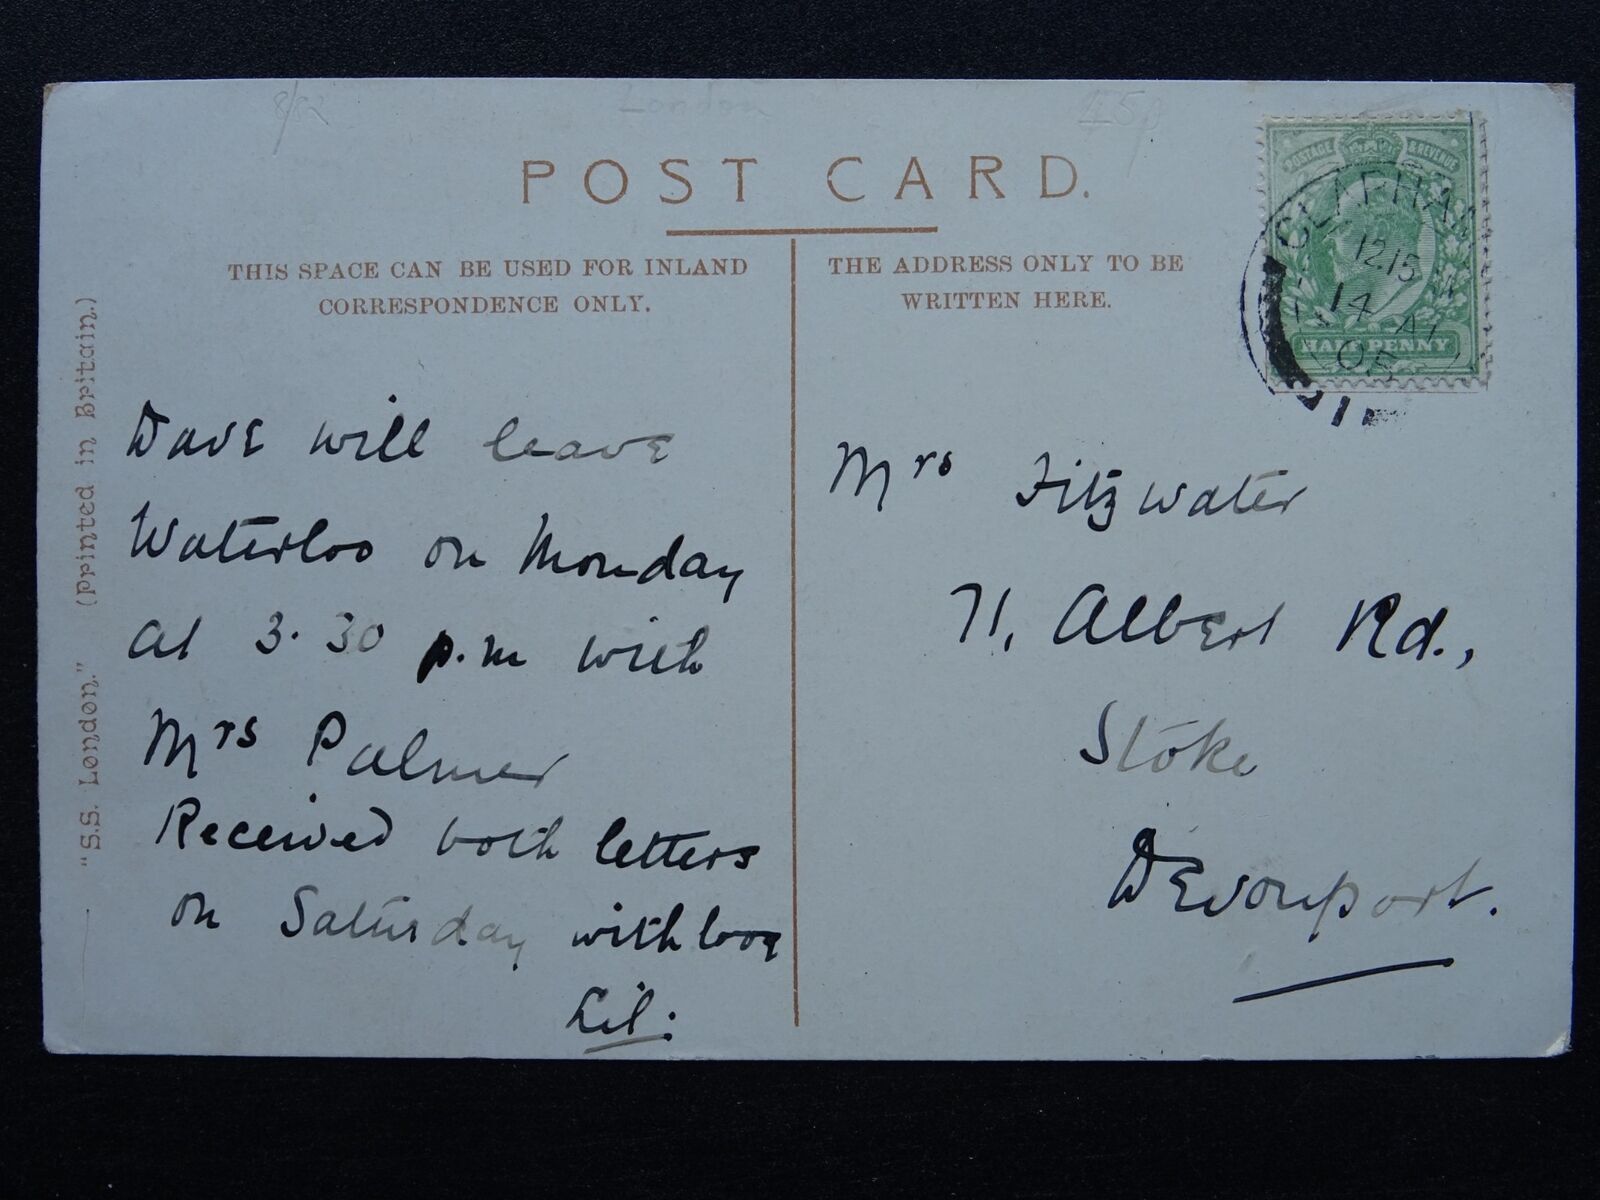 London
POST CARD.
THIS SPACE CAN BE USED FOR INLAND
CORRESPONDENCE ONLY.
THE ADDRESS ONLY TO BE
WRITTEN HERE.
"S.S. London." (Printed in Britain.)
POSTAGE & REVENUE
HALF PENNY
CLAPHAM
12.15
14 AU
05
Dave will leave
Waterloo on Monday
at 3.30 p.m with
Mrs Palmer
Received both letters
on Saturday with love
Lil.
Mrs Fitzwater
71, Albert Rd.,
Stoke
Devonport.